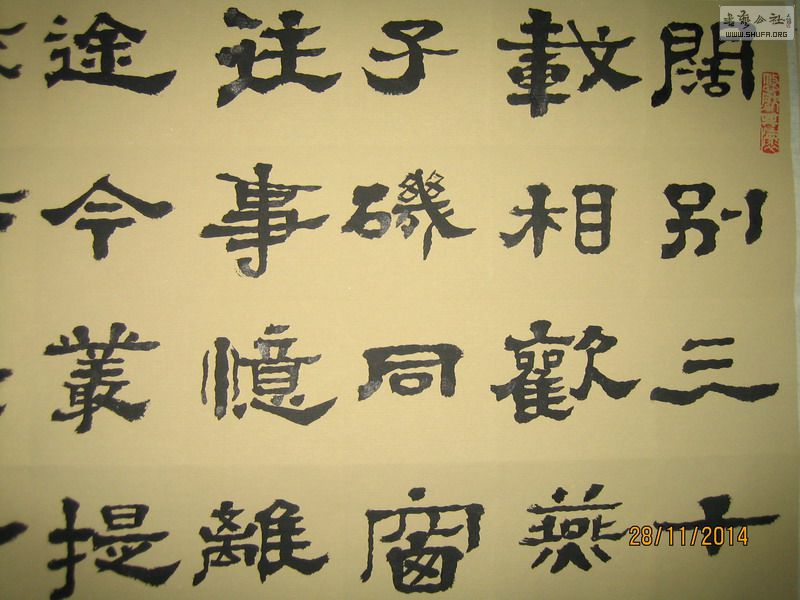 闊別三十
載相歡燕
子磯同窗
往事憶離
途今叢提
书艺公社
WWW.SHUFA.ORG
28/11/2014